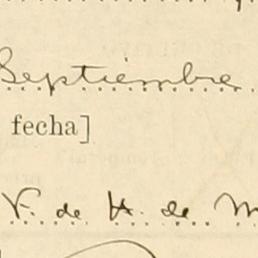 Septiembre
fecha]
V. de H. de M